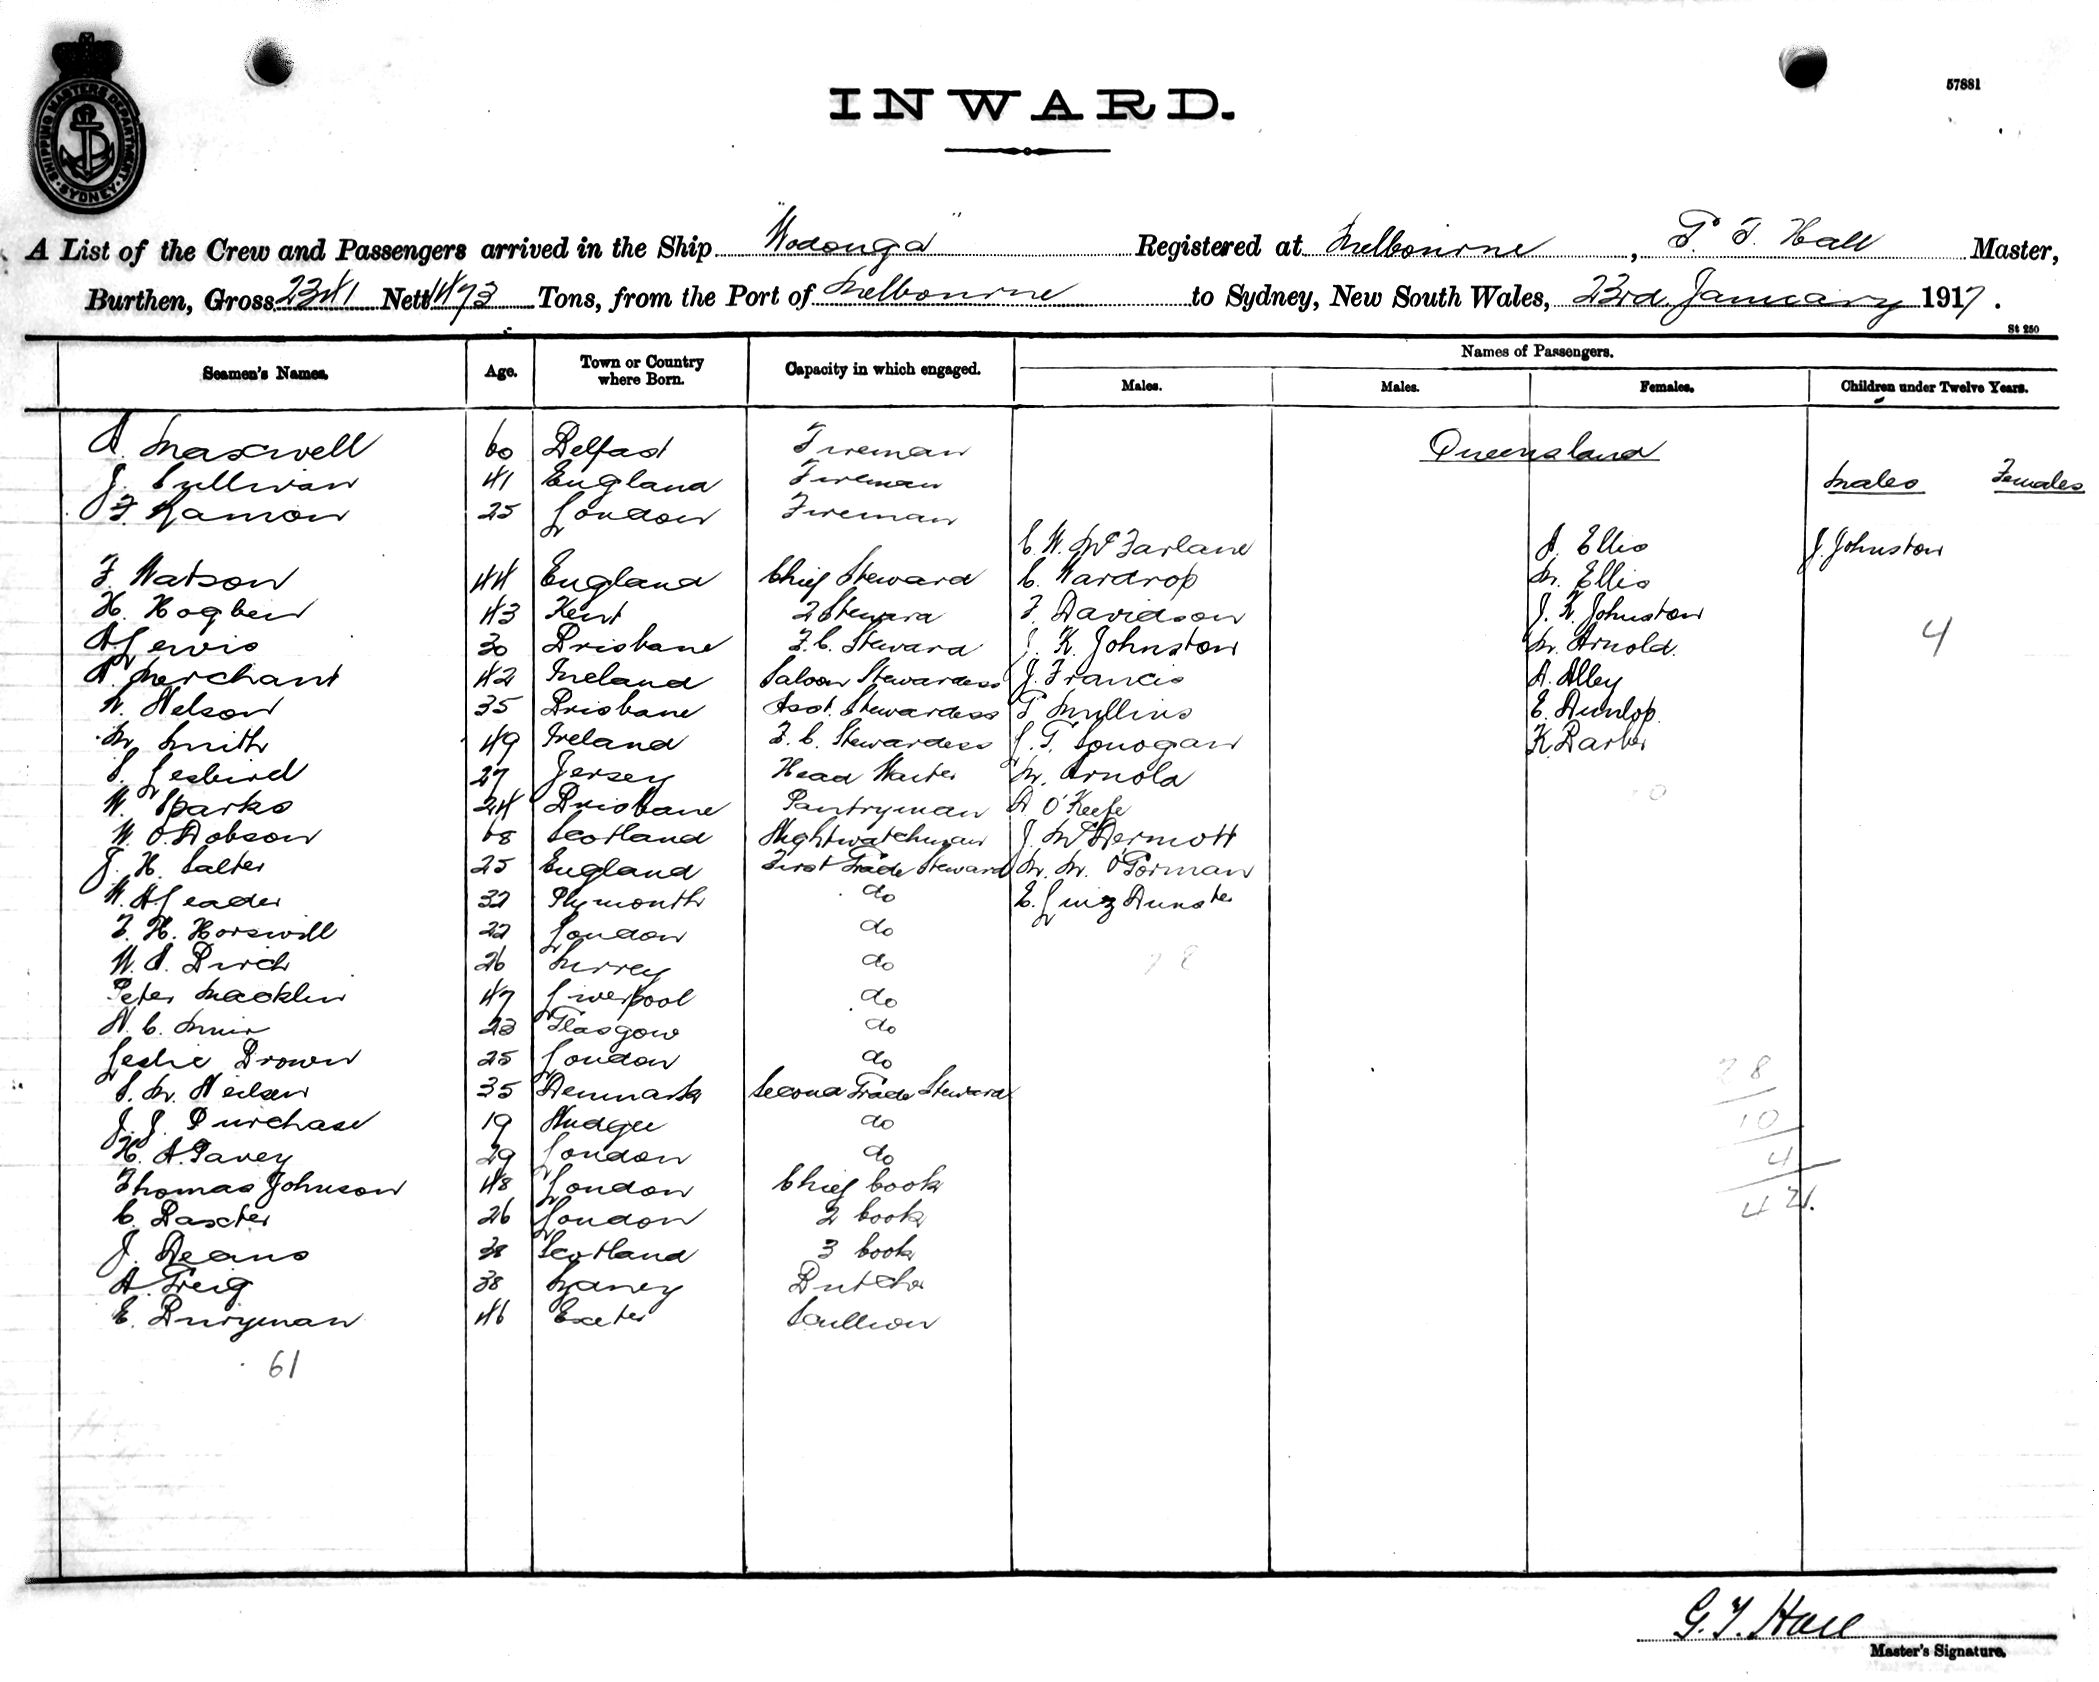 SHIPPING MASTERS DEPARTMENT SYDNEY
57881
INWARD.
A List of the Crew and Passengers arrived in the Ship "Wodonga" Registered at Melbourne, G. T. Hall Master,
Burthen, Gross 2341 Nett 1473 Tons, from the Port of Melbourne to Sydney, New South Wales, 23rd January 1917.
St 250
Seamen's Names. Age. Town or Country where Born. Capacity in which engaged. Names of Passengers.
Males. Males. Females. Children under Twelve Years.
A. Maxwell 60 Belfast Fireman Queensland
J. Sullivan 41 England Fireman Males Females
F. Ramon 25 London Fireman
C. W. McFarlane A. Ellis J. Johnston
F. Watson 44 England Chief Steward C. Wardrop M. Ellis
H. Hogben 43 Kent 2 Steward F. Davidson J. K. Johnston
A. Lewis 30 Brisbane F.C. Steward J. K. Johnston M. Arnold. 4
A. Merchant 42 Ireland Saloon Stewardess J. Francis A. Alley
N. Nelson 35 Brisbane Asst. Stewardess G. Mullins E. Dunlop.
M. Smith 49 Ireland F. C. Stewardess L. G. Sonogan K. Barber
S. Lesbird 27 Jersey Head Waiter M. Arnold
W. Sparks 24 Brisbane Pantryman A. O'Keefe
W. O. Dobson 68 Scotland Nightwatchman J. McDermott
J. H. Salter 25 England First Grade Steward M. M. O'Gorman
W. A. Leader 32 Plymouth do E. Dunster
F. H. Horswill 22 London do
W. S. Birch 26 Surrey do
Peter Macklin 47 Liverpool do
N. C. Muir 23 Glasgow do
Leslie Brown 25 London do
S. M. Neilsen 35 Denmark Second Grade Steward 28
J. J. Purchase 19 Mudgee do 10
H. A. Pavey 29 London do 4
Thomas Johnson 48 London Chief Cook
C. Baxter 26 London 2 Cook 42.
J. Deans 38 Scotland 3 Cook
A. Greig 38 Sydney Butcher
E. Berryman 46 Exeter Scullion
61
G. T. Hall
Master's Signature.